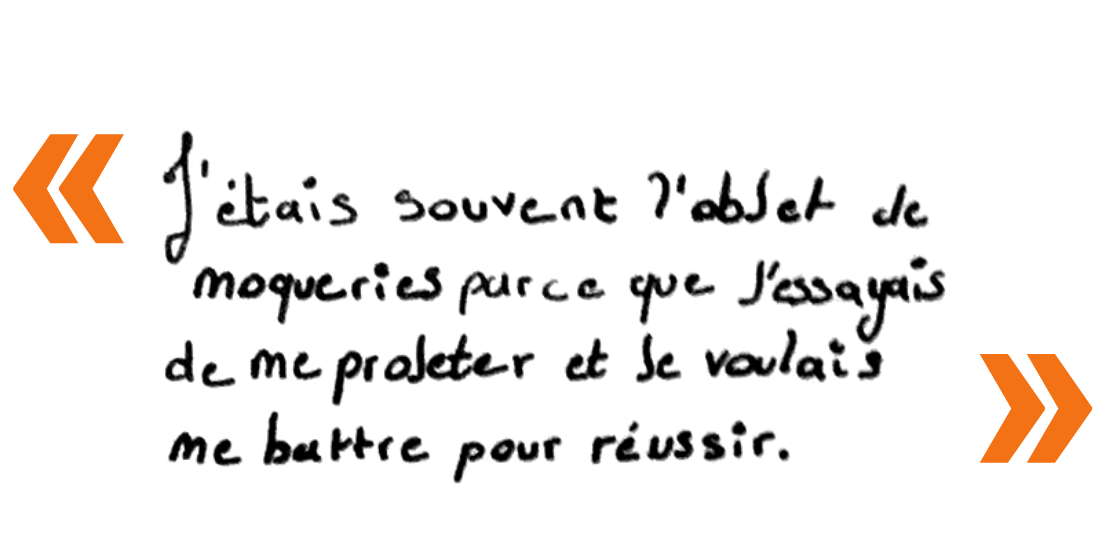 « J'étais souvent l'objet de
moqueries parce que j'essayais
de me projeter et je voulais
me battre pour réussir. »